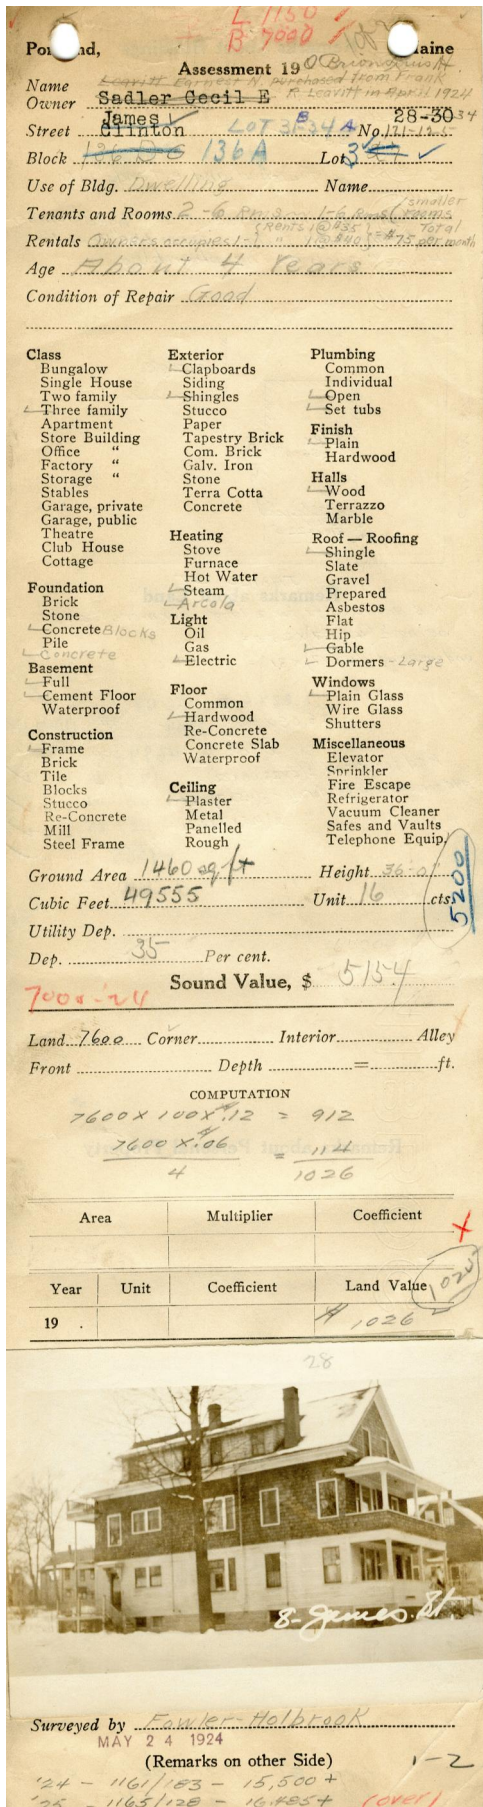 L 1150
B 7000
Portland, Maine
Assessment 19
Name Leavitt Earnest N. purchased from Frank
Owner Sadler Cecil E R. Leavitt in April 1924
James 28-30
Street Clinton LOT 31-34 A No. 121-125
Block 136 A Lot 3
Use of Bldg. Dwelling Name
Tenants and Rooms 2-6 Rms 1-6 Rms (smaller rooms
Rentals Owner occupies 1-1 (Rents 1@$35 1@$40) = $75 Total per month
Age About 4 Years
Condition of Repair Good
Class
Bungalow
Single House
Two family
Three family
Apartment
Store Building
Office "
Factory "
Storage "
Stables
Garage, private
Garage, public
Theatre
Club House
Cottage
Foundation
Brick
Stone
Concrete Blocks
Pile
Concrete
Basement
Full
Cement Floor
Waterproof
Construction
Frame
Brick
Tile
Blocks
Stucco
Re-Concrete
Mill
Steel Frame
Exterior
Clapboards
Siding
Shingles
Stucco
Paper
Tapestry Brick
Com. Brick
Galv. Iron
Stone
Terra Cotta
Concrete
Heating
Stove
Furnace
Hot Water
Steam
Arcola
Light
Oil
Gas
Electric
Floor
Common
Hardwood
Re-Concrete
Concrete Slab
Waterproof
Ceiling
Plaster
Metal
Panelled
Rough
Plumbing
Common
Individual
Open
Set tubs
Finish
Plain
Hardwood
Halls
Wood
Terrazzo
Marble
Roof — Roofing
Shingle
Slate
Gravel
Prepared
Asbestos
Flat
Hip
Gable
Dormers - Large
Windows
Plain Glass
Wire Glass
Shutters
Miscellaneous
Elevator
Sprinkler
Fire Escape
Refrigerator
Vacuum Cleaner
Safes and Vaults
Telephone Equip.
Ground Area 1460 sq ft Height 36-0"
Cubic Feet 49555 Unit 16 cts.
5200
Utility Dep.
Dep. 35 Per cent.
Sound Value, $ 5154
7000-24
Land 7600 Corner Interior Alley
Front Depth = ft.
COMPUTATION
7600 X 100 X .12 = 912
7600 X .06 = 114
4 1026
Area Multiplier Coefficient
X
Year Unit Coefficient Land Value
1025
19 . $ 1026
28
8-James. St.
Surveyed by Fowler-Holbrook
MAY 24 1924
(Remarks on other Side) 1-2
'24 - 1161/183 - 15,500+
'25 - 1165/128 - 16,485+ (over)